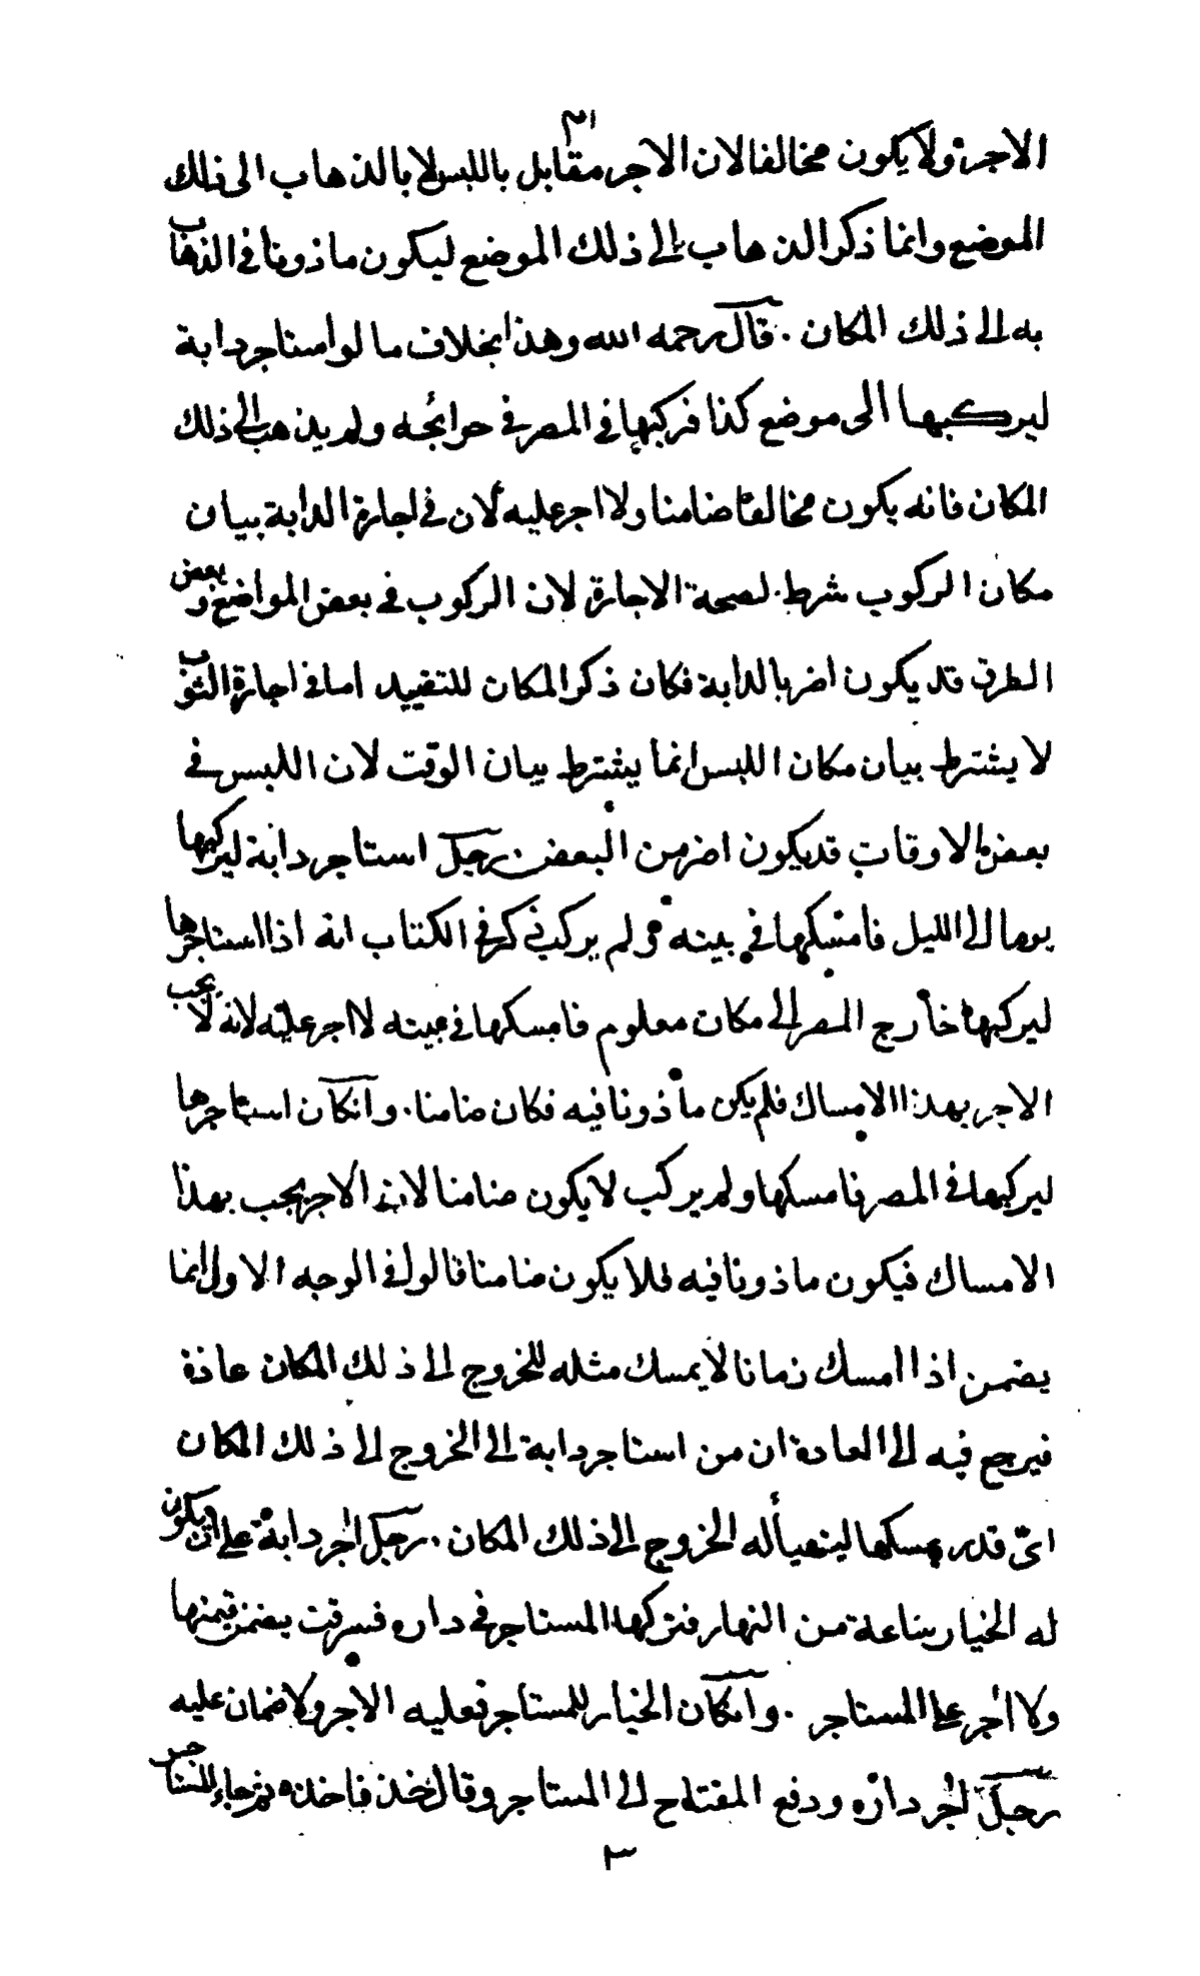 ٣١
الاجرة ولا يكون مخالفا لان الاجر مقابل باللبس لا بالذهاب الى ذلك
الموضع وانما ذكر الذهاب الى ذلك الموضع ليكون ماذونا في الذهاب
به الى ذلك المكان . قال رحمه الله وهذا بخلاف ما لو استاجر دابة
ليركبها الى موضع كذا فركبها في المصر في حوائجه ولم يذهب الى ذلك
المكان فانه يكون مخالفا ضامنا ولا اجر عليه لان في اجارة الدابة بيان
مكان الركوب شرط لصحة الاجارة لان الركوب في بعض المواضع وبعض
الطرق قد يكون اضر بالدابة فكان ذكر المكان للتقييد اما في اجارة الثوب
لا يشترط بيان مكان اللبس انما يشترط بيان الوقت لان اللبس في
بعض الاوقات قد يكون اضر من البعض رجل استاجر دابة ليركبها
يوما الى الليل فامسكها في بيته ولم يركب ذكر في الكتاب انه اذا استاجرها
ليركبها خارج المصر الى مكان معلوم فامسكها في بيته لا اجر عليه لانه لا يجب
الاجر بهذا الامساك فلم يكن ماذونا فيه فكان ضامنا . وان كان استاجرها
ليركبها في المصر فامسكها ولم يركب لا يكون ضامنا لان الاجر يجب بهذا
الامساك فيكون ماذونا فيه فلا يكون ضامنا قالوا في الوجه الاول انما
يضمن اذا امسك زمانا لا يمسك مثله للخروج الى ذلك المكان عادة
فيرجع فيه الى العادة ان من استاجر دابة الى الخروج الى ذلك المكان
اي قدر يمسكها ليتهيأ له الخروج الى ذلك المكان . رجل اجر دابة على ان يكون
له الخيار ساعة من النهار فتركها المستاجر في داره فسرقت يضمن قيمتها
ولا اجر على المستاجر . وان كان الخيار للمستاجر فعليه الاجر ولا ضمان عليه
رجل اجر داره ودفع المفتاح الى المستاجر وقال خذ فاخذه ثم جاء المستاجر
٣